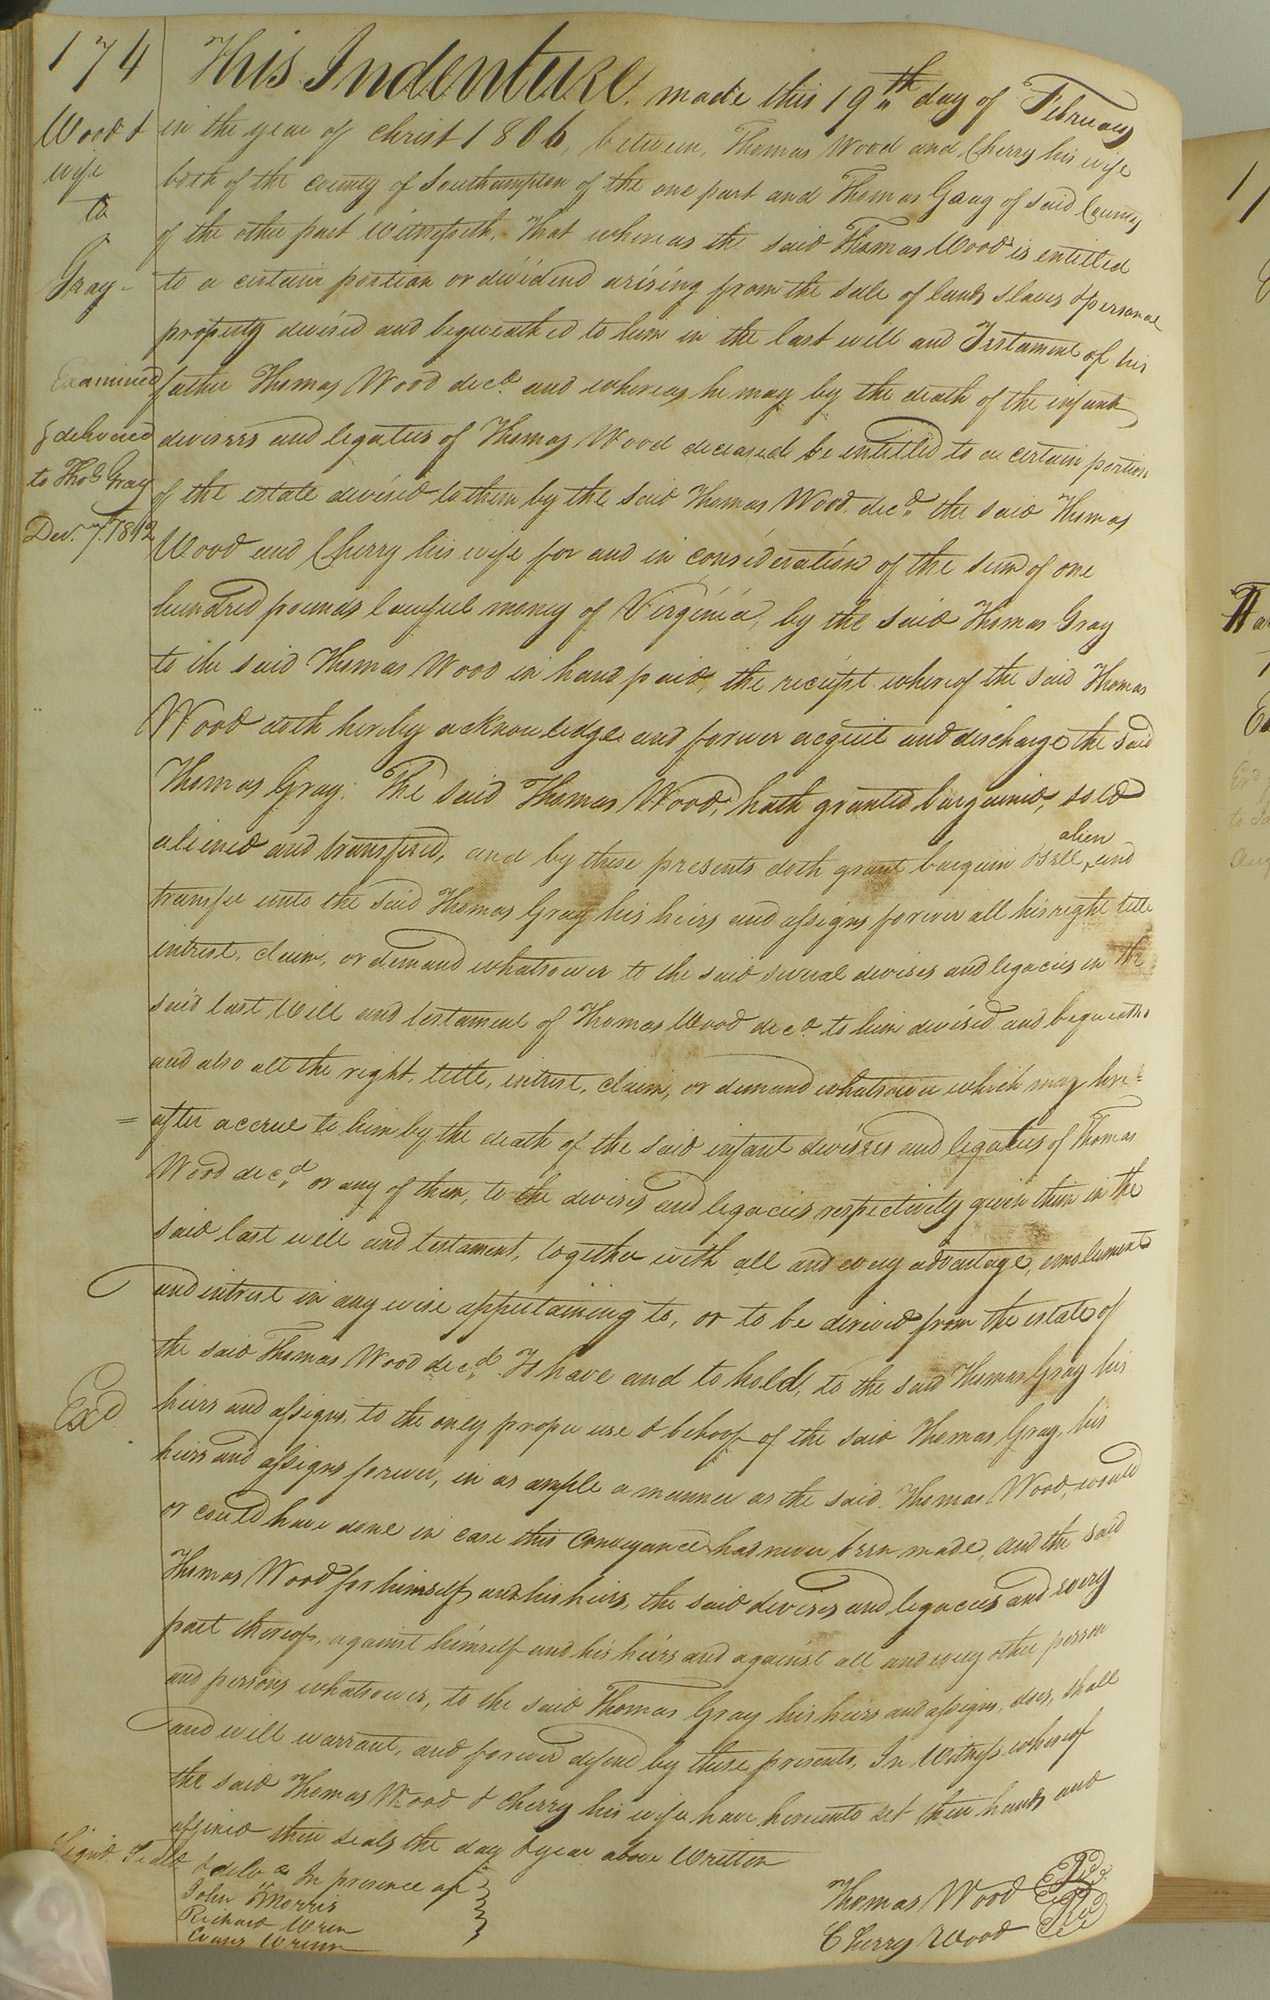 174
This Indenture made this 19th day of February
Wood &
wife
to
Gray
in the year of Christ 1806, between, Thomas Wood and Cherry his wife
both of the county of Southampton of the one part and Thomas Gray of said County
of the other part witnesseth, That whereas the said Thomas Wood is entitled
to a certain portion or dividend arising from the sale of lands slaves & personal
property devised and bequeathed to him in the last will and Testament of his
father Thomas Wood decd. and whereas he may by the death of the infant
devisees and legatees of Thomas Wood deceased be entitled to a certain portion
of the estate devised to them by the said Thomas Wood decd. the said Thomas
Examined
& delivered
to Thos Gray
Decr. 7th. 1812
Wood and Cherry his wife for and in consideration of the sum of one
hundred pounds lawful money of Virginia, by the said Thomas Gray
to the said Thomas Wood in hand paid, the receipt whereof the said Thomas
Wood doth hereby acknowledge and forever acquit and discharge the said
Thomas Gray: The said Thomas Wood, hath granted bargained, sold
aliened and transfered, and by these presents doth grant bargain & sell, alien and
transfer unto the said Thomas Gray his heirs and assigns forever all his right title
intrest, claim, or demand whatsoever to the said several devises and legacies in the
said last Will and testament of Thomas Wood decd. to him devised and bequeathd
and also all the right, title, intrest, claim, or demand whatsoever which may here=
=after accrue to him by the death of the said infant devisees and legatees of Thomas
Wood decd. or any of them, to the devises and legacies respectively given them in the
said last will and testament, together with all and every advantage, emolument
and intrest in any wise appertaining to, or to be derived from the estate of
the said Thomas Wood decd. To have and to hold, to the said Thomas Gray his
Exd
heirs and assigns, to the only proper use & behoof of the said Thomas Gray, his
heirs and assigns forever, in as ample a manner as the said Thomas Wood, would
or could have done in case this Conveyance had never been made, and the said
Thomas Wood for himself and his heirs, the said devises and legacies and every
part thereof, against himself and his heirs and against all and every other person
and persons whatsoever, to the said Thomas Gray his heirs and assigns, does, shall
and will warrant, and forever defend by these presents, In Witness whereof
the said Thomas Wood & Cherry his wife have hereunto set their hands and
affixed their seals the day & year above Written
Signd. Seald & delvd In presence of
John Morris
Richard Wren
Evans Wrenn
Thomas Wood
Cherry Wood